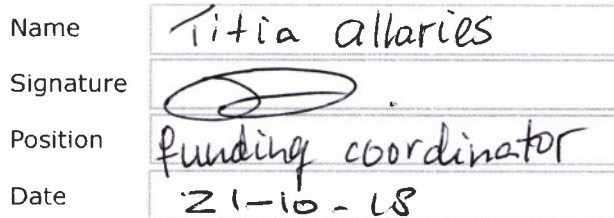 Name Titia allaries
Signature
Position funding coordinator
Date 21-10-18